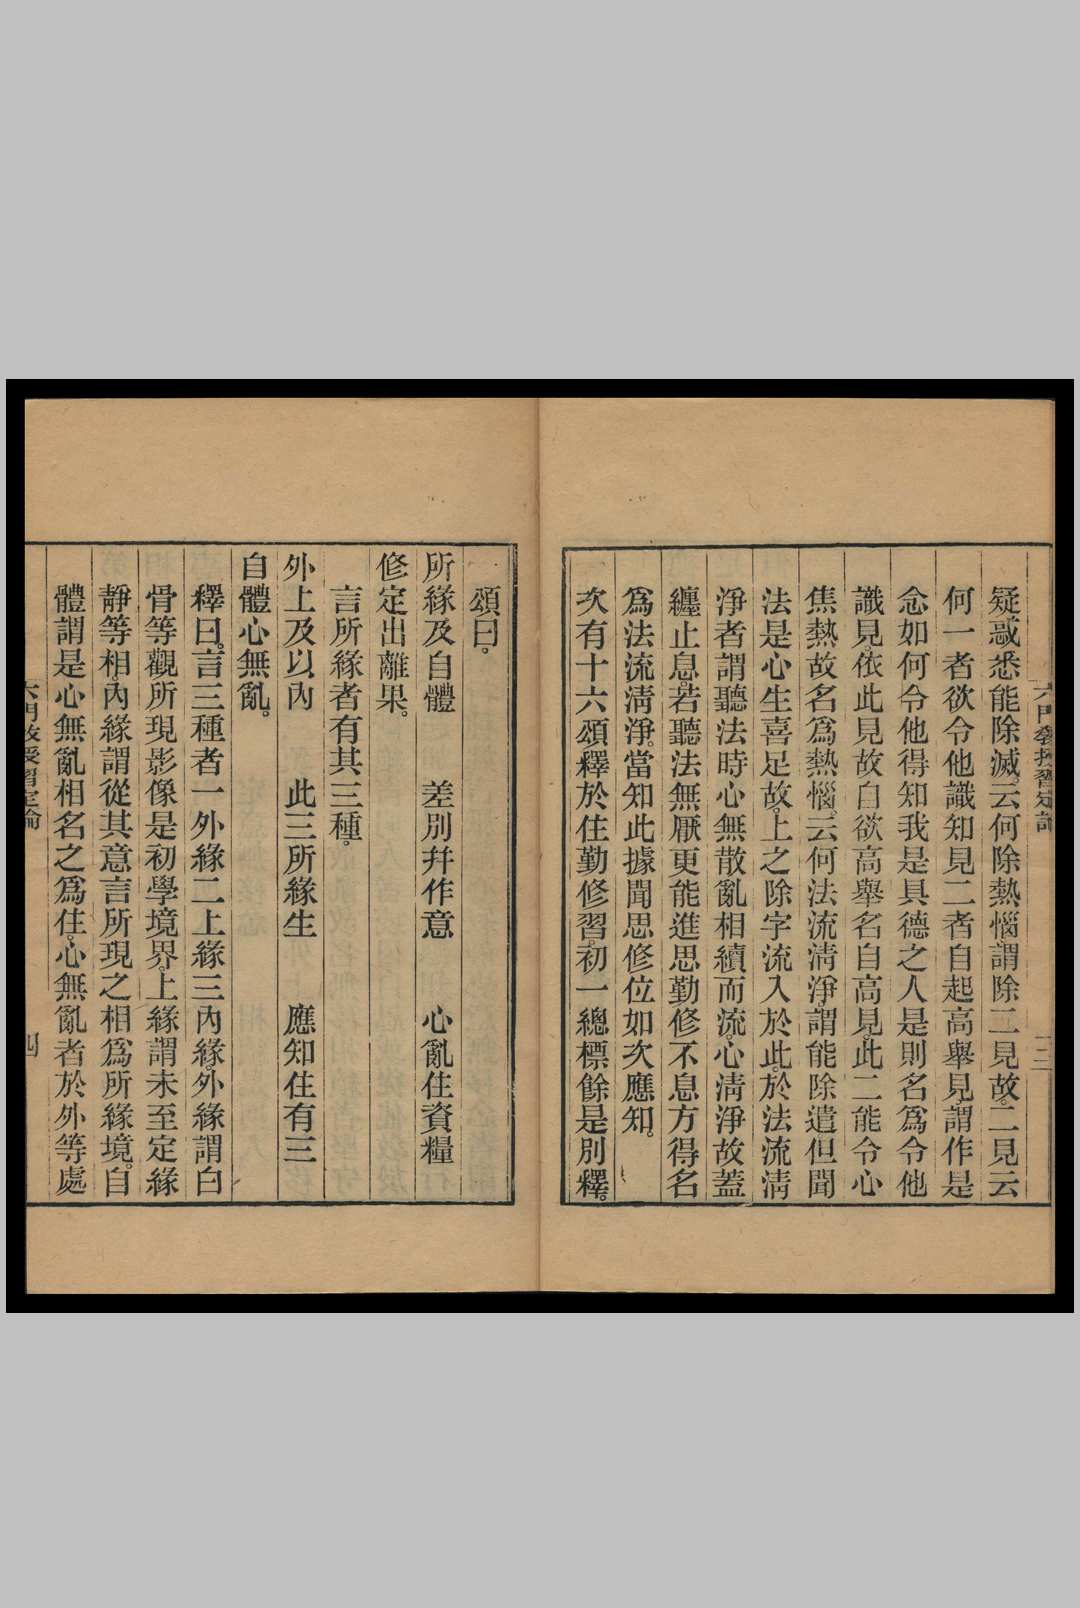 六門教授習定論
三
疑惑悉能除滅。云何除熱惱。謂除二見故。二見云
何一者欲令他識知見二者自起高舉見。謂作是
念如何令他得知我是具德之人是則名爲令他
識見。依此見故自欲高舉名自高見。此二能令心
焦熱故名爲熱惱。云何法流清淨。謂能除遣但聞
法是心生喜足故。上之除字流入於此。於法流清
淨者謂聽法時心無散亂相續而流。心清淨故蓋
纏止息。若聽法無厭更能進思勤修不息方得名
爲法流清淨。當知此據聞思修位如次應知。
次有十六頌釋於住勤修習。初一總標餘是別釋。
頌曰。
所緣及自體　差別幷作意　心亂住資糧
修定出離果。
言所緣者有其三種。
外上及以內　此三所緣生　應知住有三
自體心無亂。
釋曰。言三種者一外緣二上緣三內緣。外緣謂白
骨等觀所現影像是初學境界。上緣謂未至定緣
靜等相。內緣謂從其意言所現之相爲所緣境。自
體謂是心無亂相名之爲住。心無亂者於外等處
六門教授習定論
四